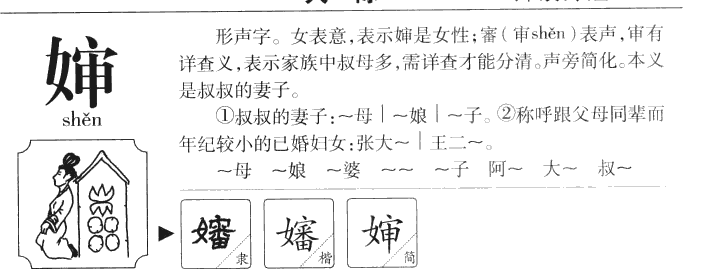 婶
shěn
形声字。女表意,表示婶是女性;審(审shěn)表声,审有
详查义,表示家族中叔母多,需详查才能分清。声旁简化。本义
是叔叔的妻子。
①叔叔的妻子:～母｜～娘｜～子。②称呼跟父母同辈而
年纪较小的已婚妇女:张大～｜王二～。
～母 ～娘 ～婆 ～～ ～子 阿～ 大～ 叔～
嬸 隶
嬸 楷
婶 简